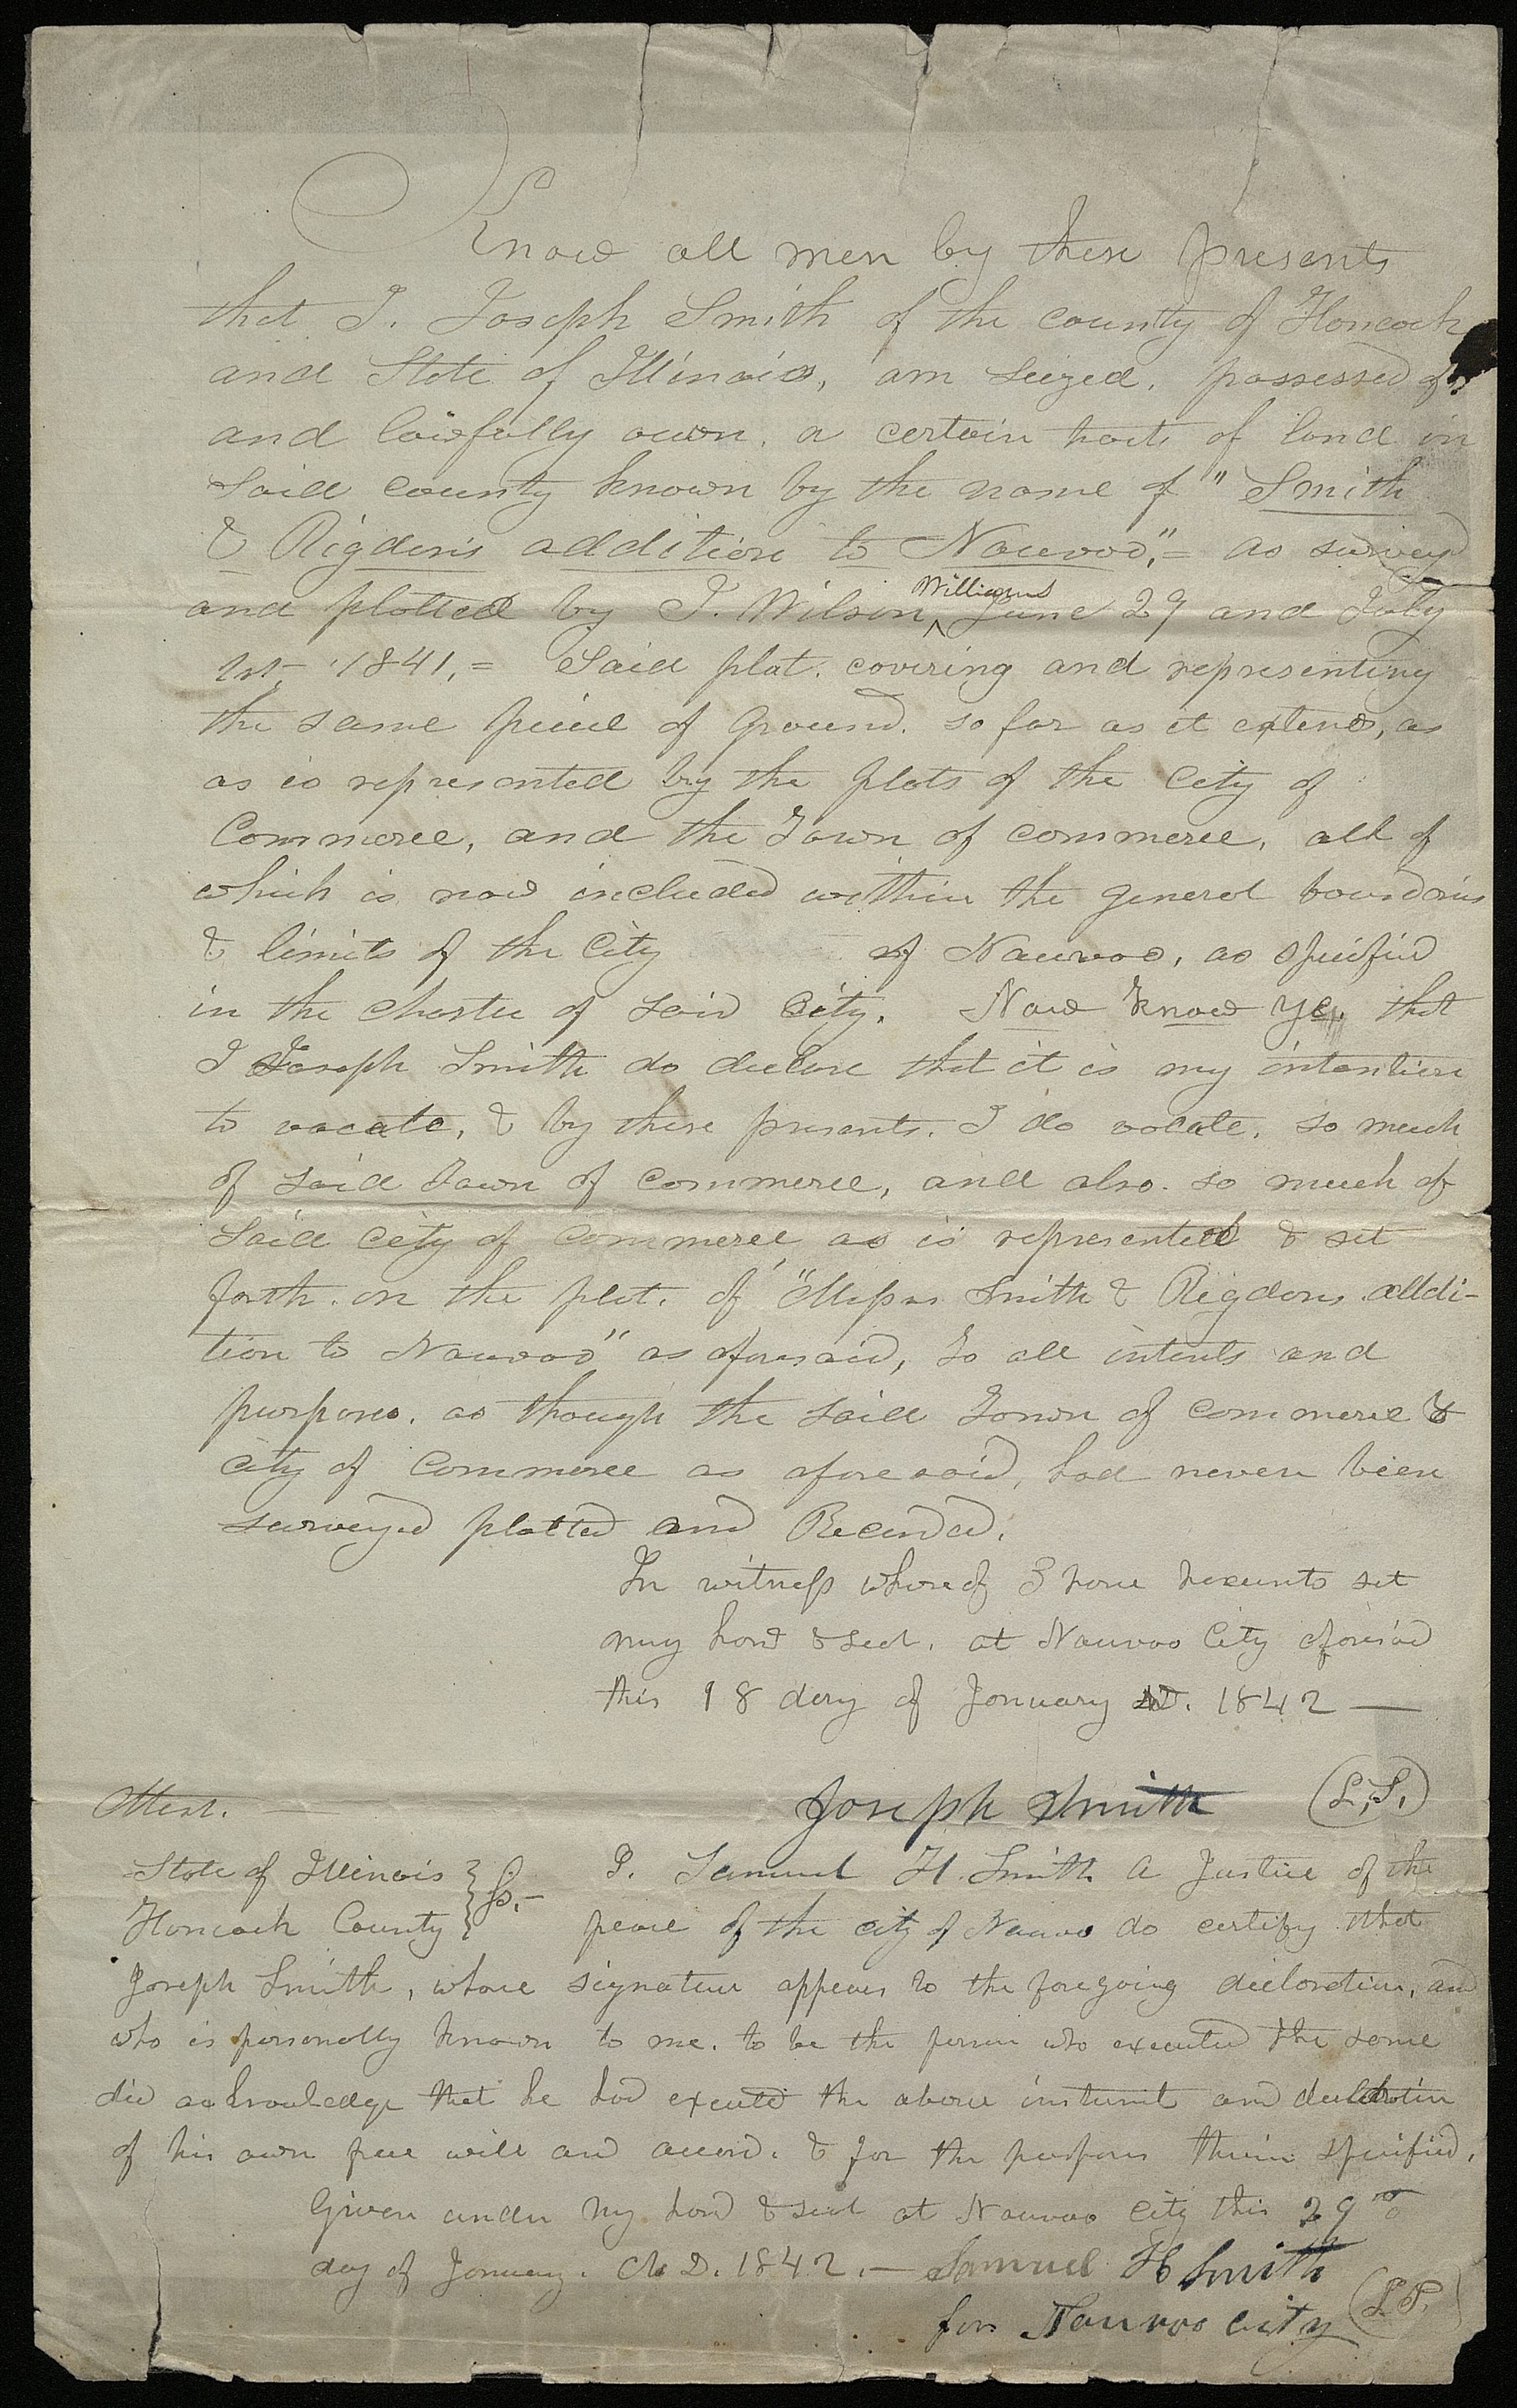 Know all men by these presents
that I. Joseph Smith of the county of Hancock
and State of Illinois, am seized, possessed of,
and lawfully own, a certain tract of land in
said county known by the name of "Smith
& Rigdon's addition to Nauvoo,"= as survey
and platted by J. Wilson, Williams June 29 and July
1st, 1841,= Said plat. covering and representing
the same piece of Ground. so far as it extends, as
as is represented by the plats of the City of
Commerce, and the Town of commerce, all of
which is now included within the general boundaries
& limits of the City of Nauvoo, as specified
in the charter of said City. Now know ye, that
I Joseph Smith do declare that it is my intention
to vacate, & by these presents. I do vacate, so much
of said Town of Commerce, and also. so much of
said City of Commerce, as is represented & set
forth. on the plat. of "Messrs Smith & Rigdons addi-
tion to Nauvoo" as aforesaid, to all intents and
purposes. as though the said Town of Commerce &
City of Commerce as aforesaid, had never been
surveyed platted and Recorded.
In witness whereof I have hereunto set
my hand & seal. at Nauvoo City aforesaid
this 18 day of January AD. 1842 —
Attest. Joseph Smith (L,S,)
State of Illinois } Ss,- I. Samuel H. Smith A Justice of the
Hancock County } peace of the city of Nauvoo do certify that
Joseph Smith, whose signature appears to the foregoing declaration, and
who is personally known to me. to be the person who executed the same
did acknowledge that he had executed the above instrument and declaration
of his own free will and accord. & for the purposes therein specified,
Given under my hand & seal at Nauvoo City this 29th
day of January. A. D. 1842.— Samuel H Smith
for Nauvoo City (L.S.)